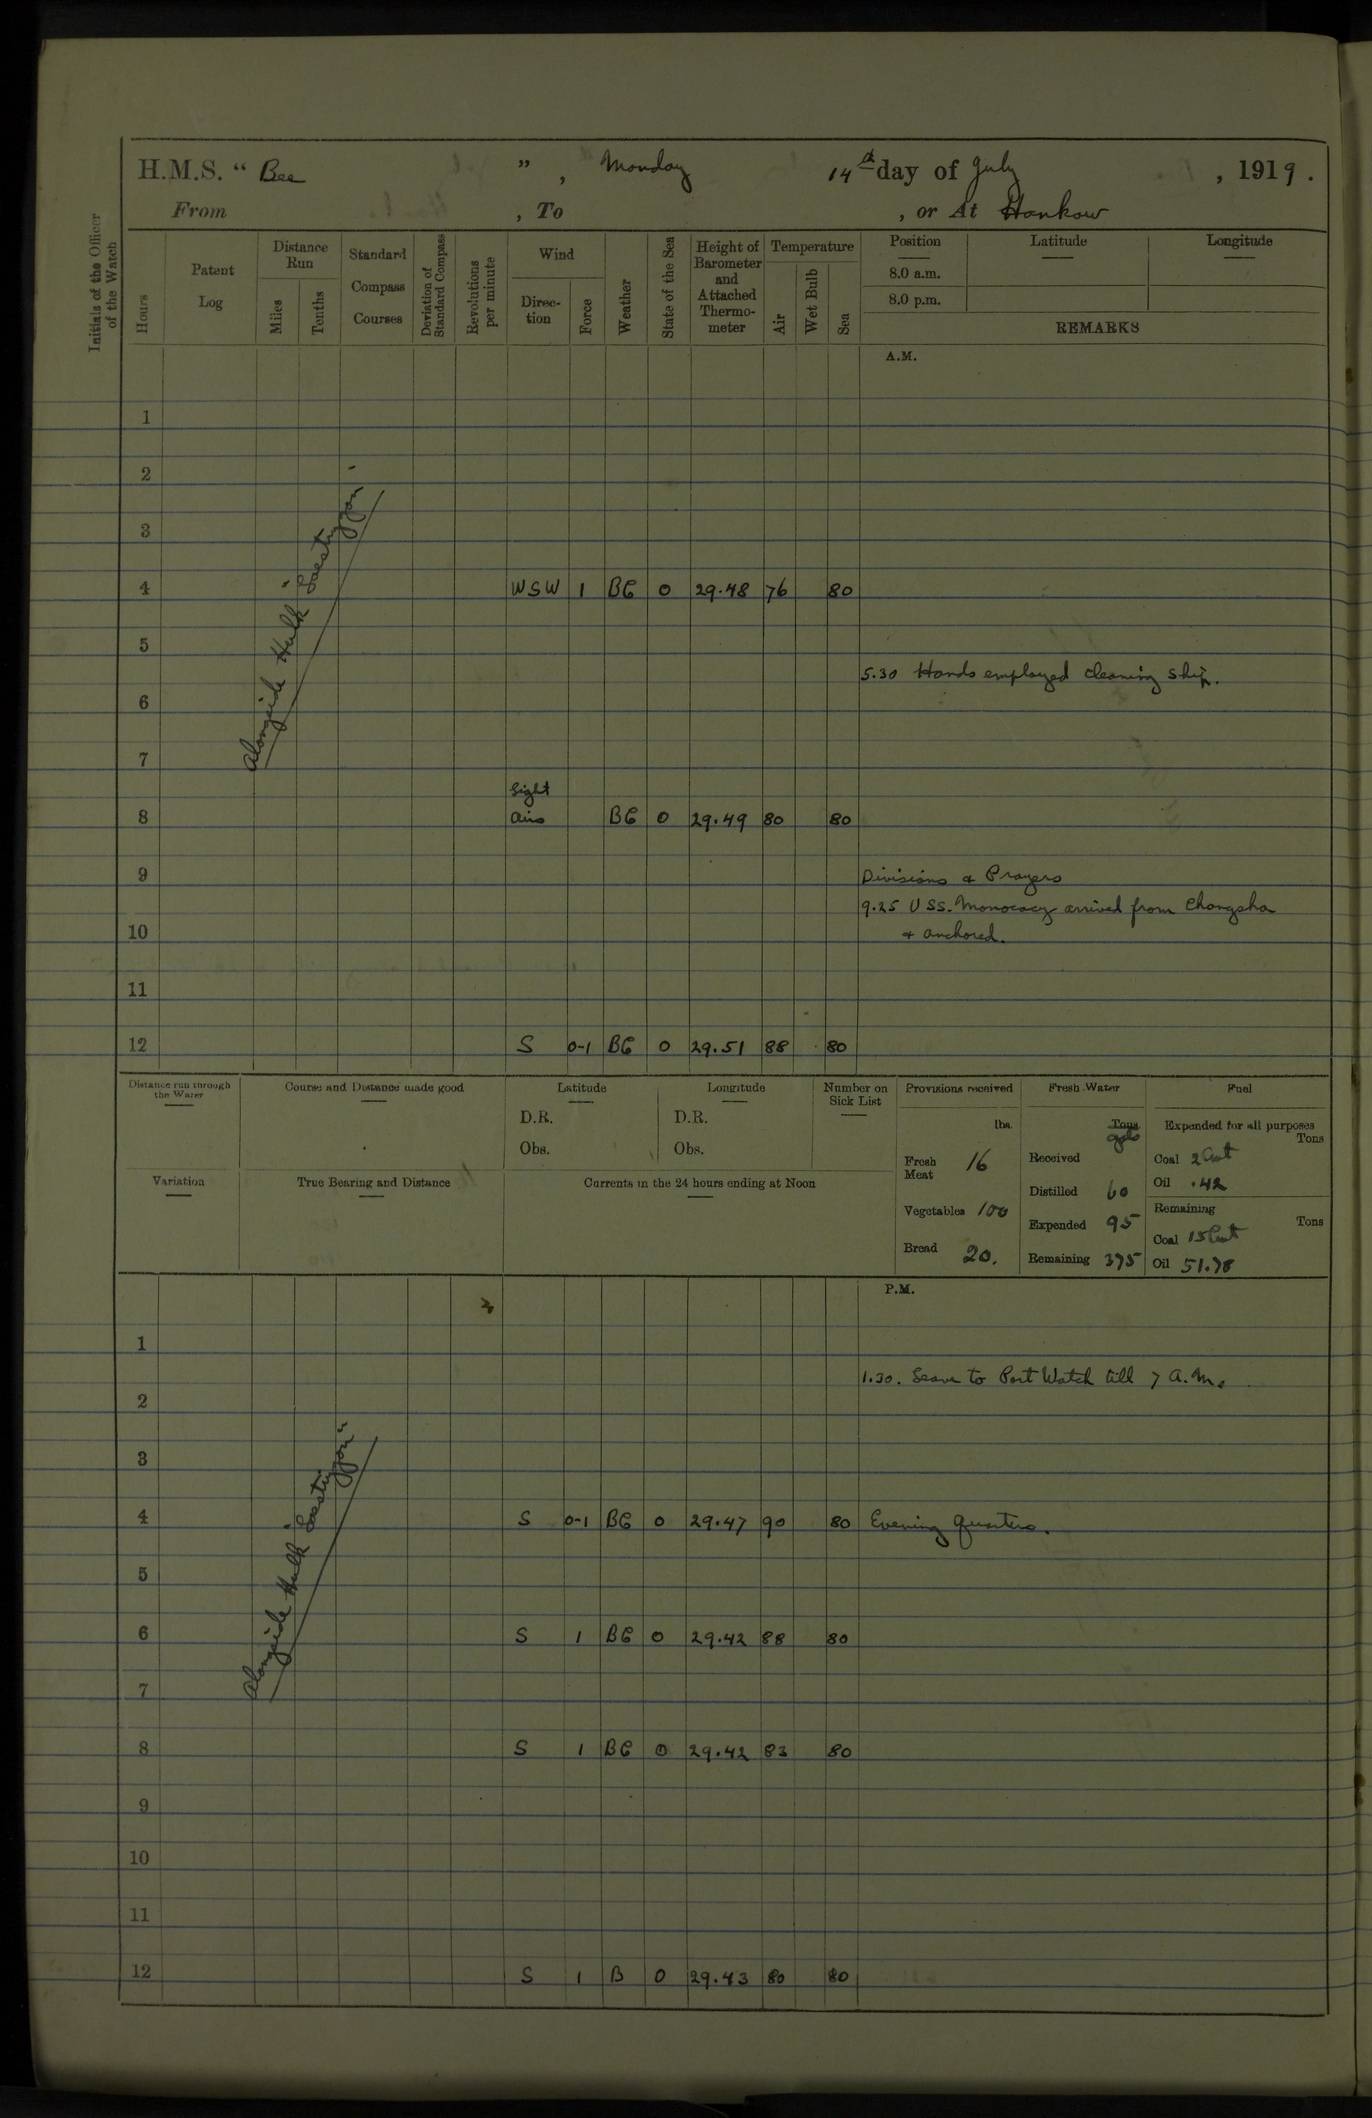 H.M.S. " Bee ", Monday 14th day of July, 1919.
From , To , or At Hankow
Initials of the Officer of the Watch
Hours
Patent Log
Distance Run
Miles
Tenths
Standard Compass Courses
Deviation of Standard Compass
Revolutions per minute
Wind
Direc-tion
Force
Weather
State of the Sea
Height of Barometer and Attached Thermo-meter
Temperature
Air
Wet Bulb
Sea
Position
8.0 a.m.
8.0 p.m.
Latitude
Longitude
REMARKS
A.M.
1
2
3
4 WSW 1 BC 0 29.48 76 80
Alongside Hulk
5
5.30 Hands employed cleaning ship.
6
7
Light
8 airs BC 0 29.49 80 80
9 Divisions & Prayers
9.25 USS. Monocacy arrived from Changsha
10 & anchored.
11
12 S 0-1 BC 0 29.51 88 80
Distance run through the Water
Course and Distance made good
Latitude
D.R.
Obs.
Longitude
D.R.
Obs.
Number on Sick List
Provisions received
lbs.
Fresh Meat 16
Vegetables 100
Bread 20.
Fresh Water
Tons
galls
Received
Distilled 60
Expended 95
Remaining 375
Fuel
Expended for all purposes
Tons
Coal 2 Cwt
Oil .42
Remaining
Tons
Coal 15 Cwt
Oil 51.78
Variation
True Bearing and Distance
Currents in the 24 hours ending at Noon
P.M.
1
1.30. Leave to Port Watch till 7 A.M.
2
3
4 S 0-1 BC 0 29.47 90 80 Evening Quarters.
Alongside Hulk
5
6 S 1 BC 0 29.42 88 80
7
8 S 1 BC 0 29.42 83 80
9
10
11
12 S 1 B 0 29.43 80 80